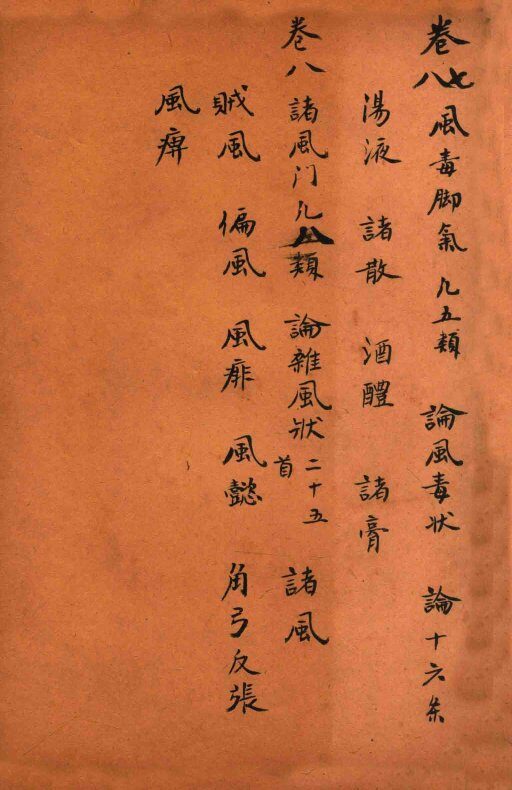 卷七八 風毒脚氣 凡五類 論風毒状 論十六条
湯液 諸散 酒醴 諸膏
卷八 諸風门 凡八類 論雜風狀 二十五首 諸風
賊風 偏風 風痱 風懿 角弓反張
風痹